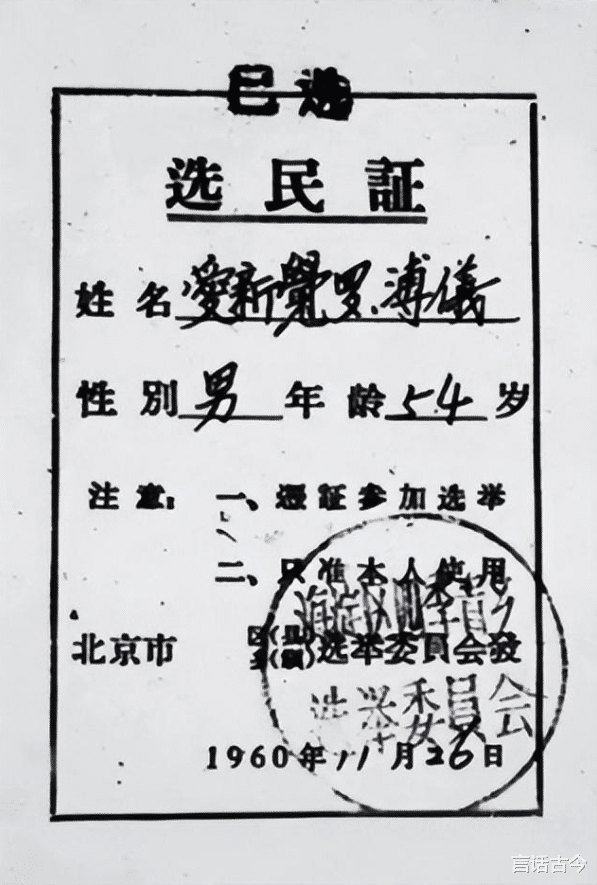 已选
选民証
姓名 愛新覺罗.溥儀
性别 男 年龄 54 岁
注意: 一、憑証参加选举
二、只准本人使用
北京市 区(县)选举委員会發
选举委員会
1960年11月26日
言话古今